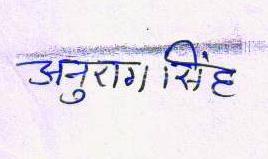 अनुराग सिंह